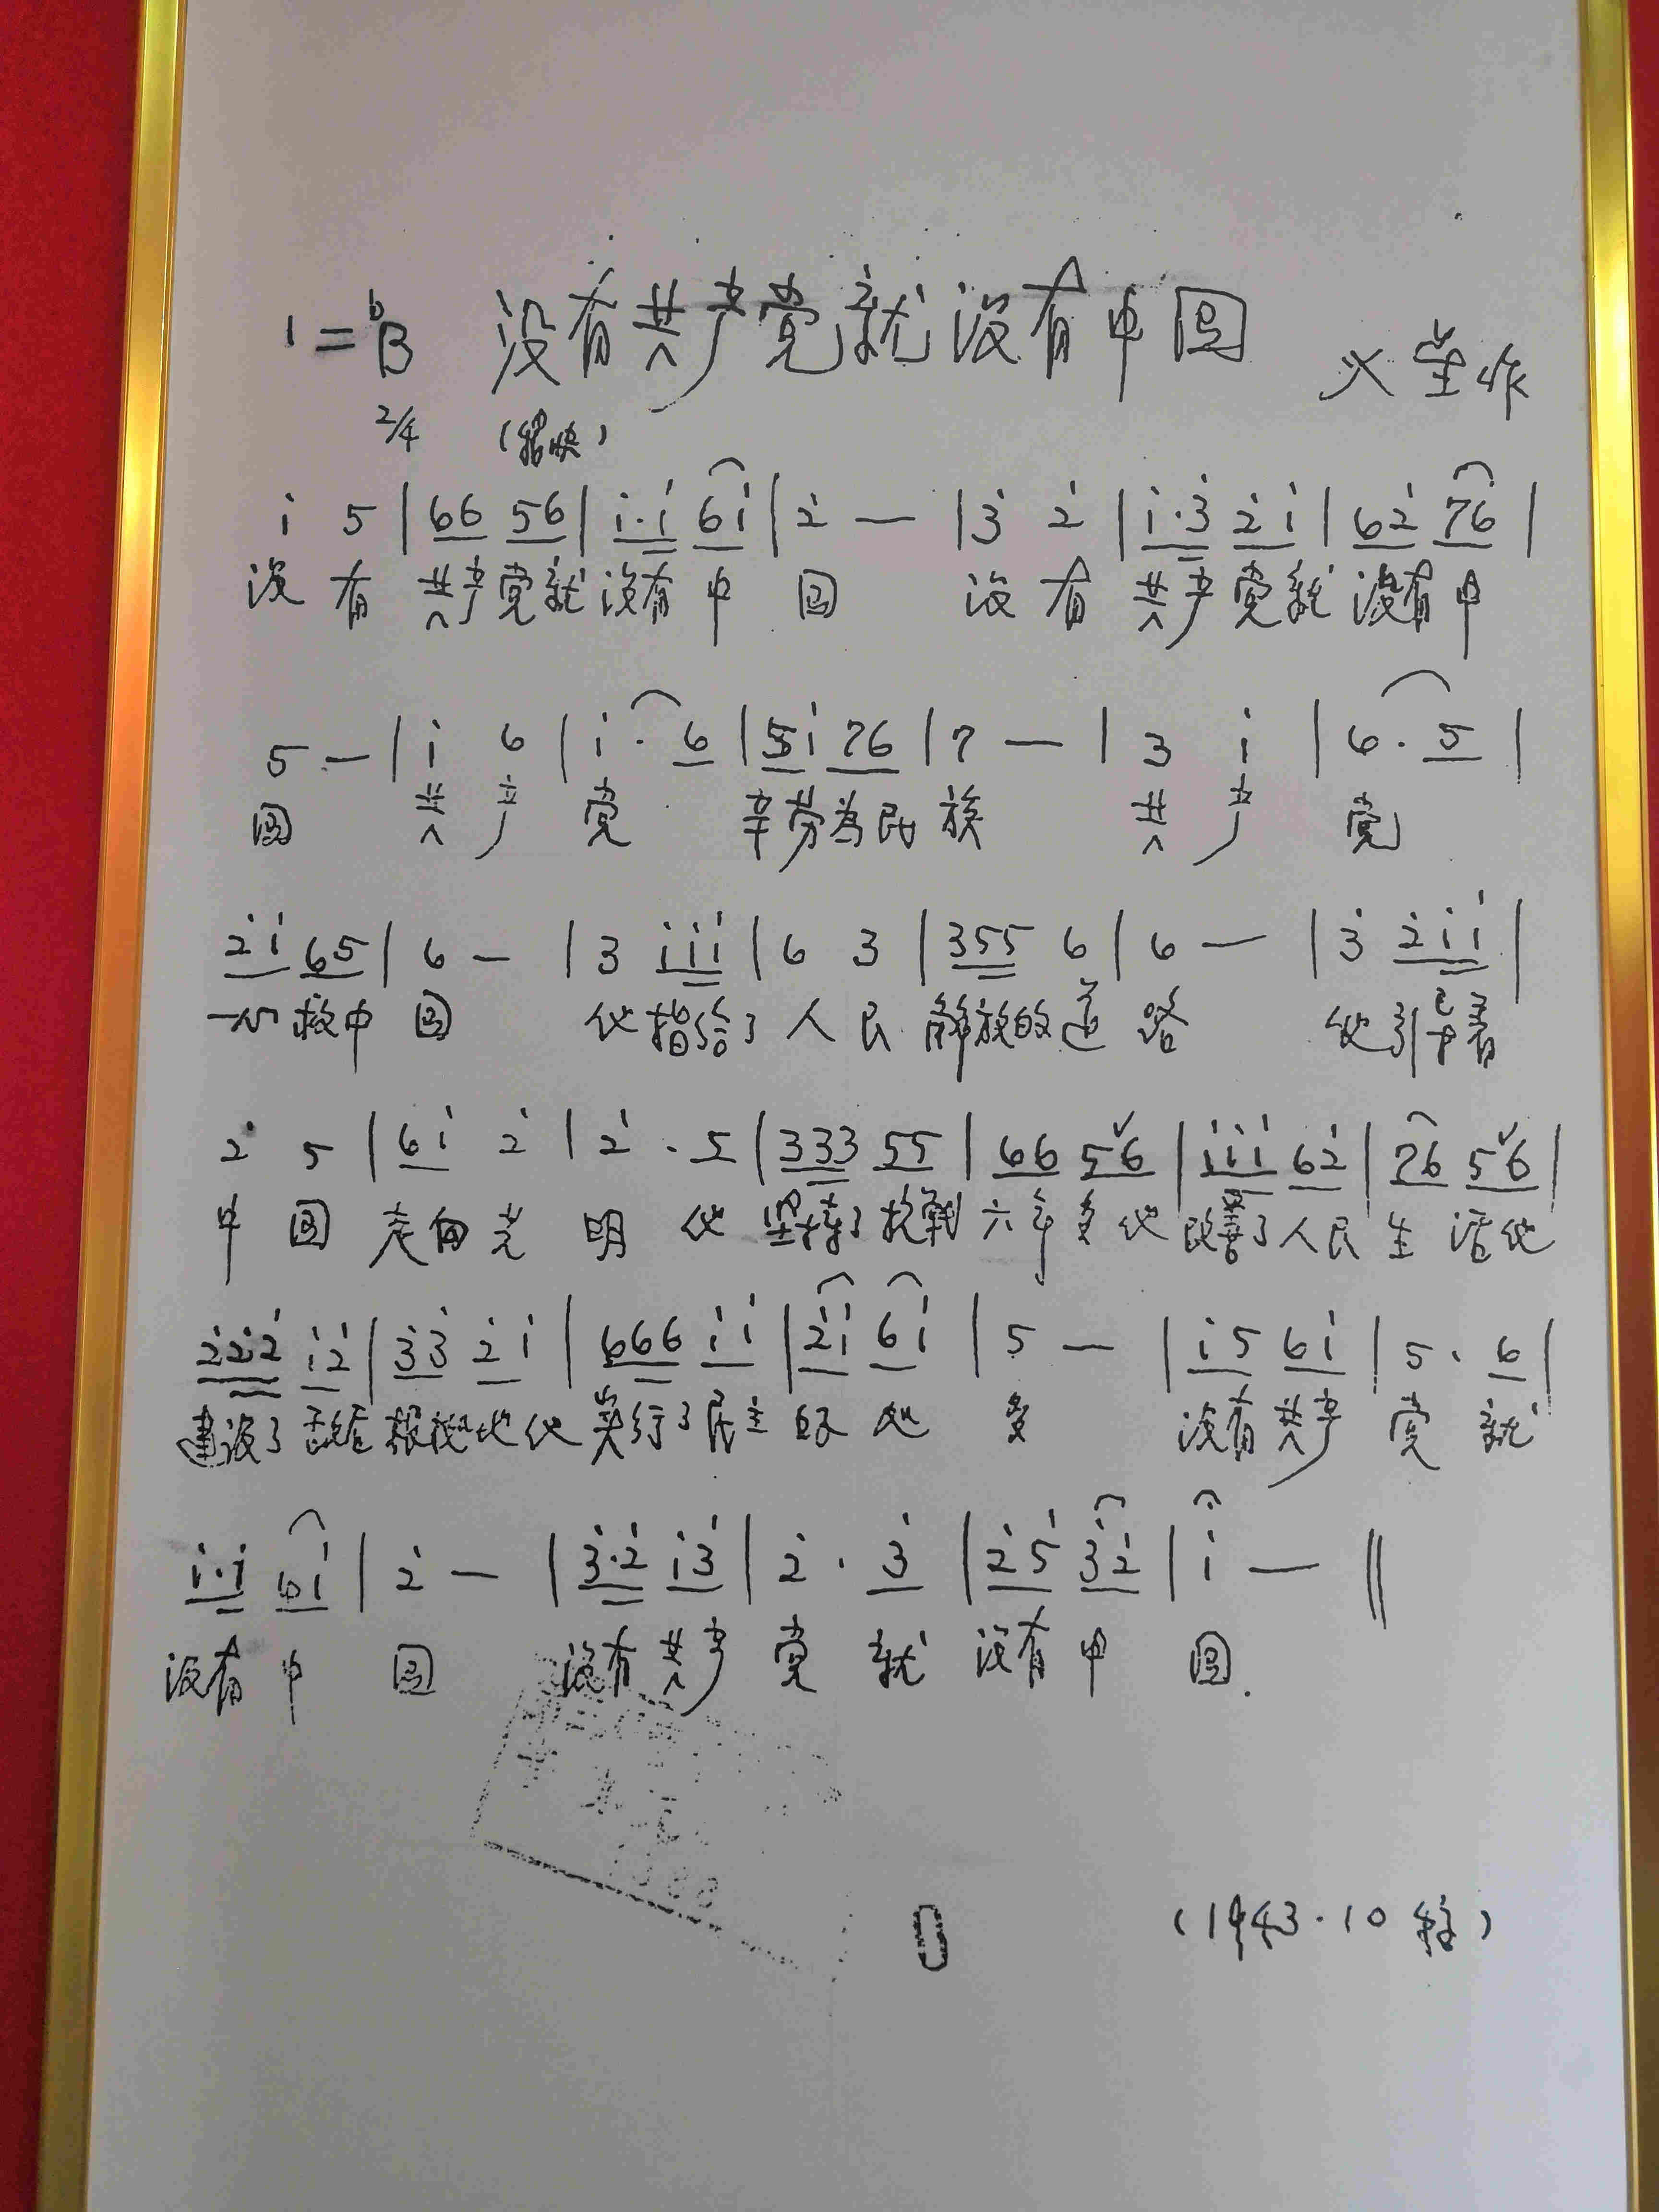 1=♭B 没有共产党就没有中国 火星作
2/4 （稍快）
i 5 | 66 56 | i·i 6i | 2̇ — | 3̇ 2̇ | i·3̇ 2̇i | 62̇ 76 |
没有共产党就没有中国 没有共产党就没有中
5 — | i 6 | i· 6 | 5i 76 | 7 — | 3 i | 6· 5 |
国 共产党 辛劳为民族 共产党
2̇i 65 | 6 — | 3 iii | 6 3 | 355 6 | 6 — | 3̇ 2̇ii |
一心救中国 他指给了人民解放的道路 他引导着
2̇ 5 | 6i 2̇ | 2̇· 5 | 333 55 | 66 5ˇ6 | iii 62̇ | 76 5ˇ6 |
中国走向光明 他坚持了抗战六年多他改善了人民生活他
2̇2̇2̇ i2̇ | 3̇3̇ 2̇i | 666 ii | 2̇i 6i | 5 — | i5 6i | 5· 6 |
建设了敌后根据地他实行了民主好处多 没有共产党就
i·i 6i | 2̇ — | 3̇·2̇ i3̇ | 2̇· 3̇ | 2̇5̇ 3̇2̇ | i — ‖
没有中国 没有共产党就没有中国.
（1943.10 稿）